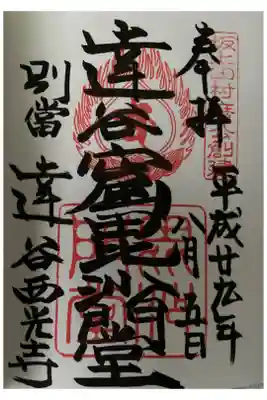 坂上田村麿公創建
奉拝
平成廿九年
八月五日
達谷窟毘沙門堂
別當
達谷西光寺